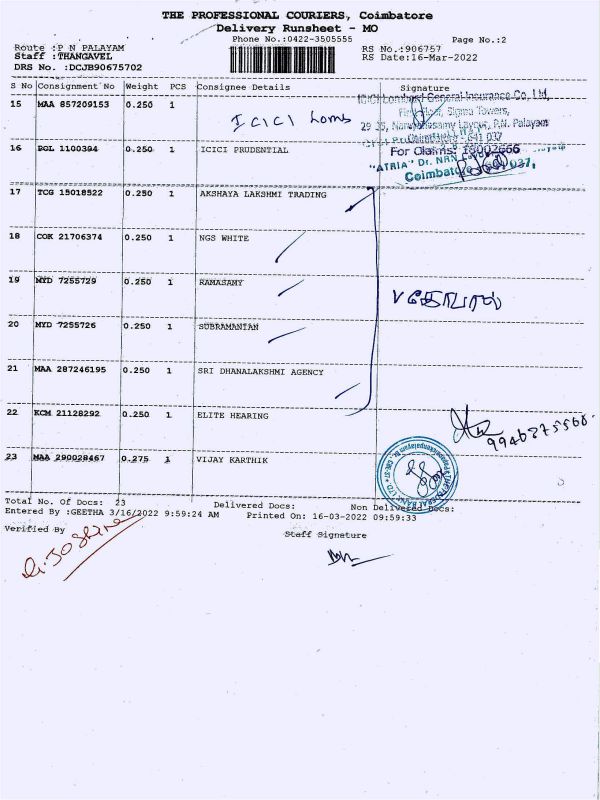 THE PROFESSIONAL COURIERS, Coimbatore
Delivery Runsheet - MO
Phone No.:0422-3505555
Page No.:2
Route :P N PALAYAM
RS No.:906757
Staff :THANGAVEL
RS Date:16-Mar-2022
DRS No. :DCJB90675702
S No Consignment No Weight PCS Consignee Details Signature
15 MAA 857209153 0.250 1
ICICI Lomb
ICICI Lombard General Insurance Co. Ltd,
First Floor, Sigma Towers,
Layout, P.N. Palayam
641 037
16 BGL 1100394 0.250 1 ICICI PRUDENTIAL
For Claims: 18002666
"ATRIA" Dr. NRN
Coimbatore 037.
17 TCG 15018522 0.250 1 AKSHAYA LAKSHMI TRADING
18 COK 21706374 0.250 1 NGS WHITE
19 MYD 7255729 0.250 1 RAMASAMY
20 MYD 7255726 0.250 1 SUBRAMANIAN
21 MAA 287246195 0.250 1 SRI DHANALAKSHMI AGENCY
22 KCM 21128292 0.250 1 ELITE HEARING
23 MAA 290028467 0.275 1 VIJAY KARTHIK
Total No. Of Docs: 23 Delivered Docs: Non Delivered Docs:
Entered By :GEETHA 3/16/2022 9:59:24 AM Printed On: 16-03-2022 09:59:33
Verified By
Staff Signature